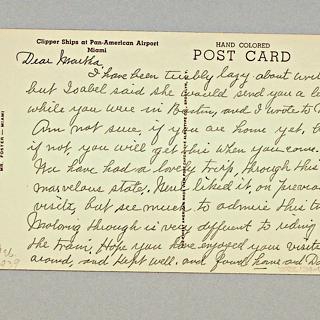 Clipper Ships at Pan-American Airport
Miami
HAND COLORED
POST CARD
Dear Martha,
I have been terribly lazy about
but Isabel said she would send you a
while you were in Boston, and I wrote to
Am not sure, if you are home yet,
if not you will get this when you come.
We have had a lovely trip, through this
marvelous state. liked it, on
visits, but see much to admire this
Motoring through is very different to riding
the train. Hope you have enjoyed your
around, and kept well. and found home and